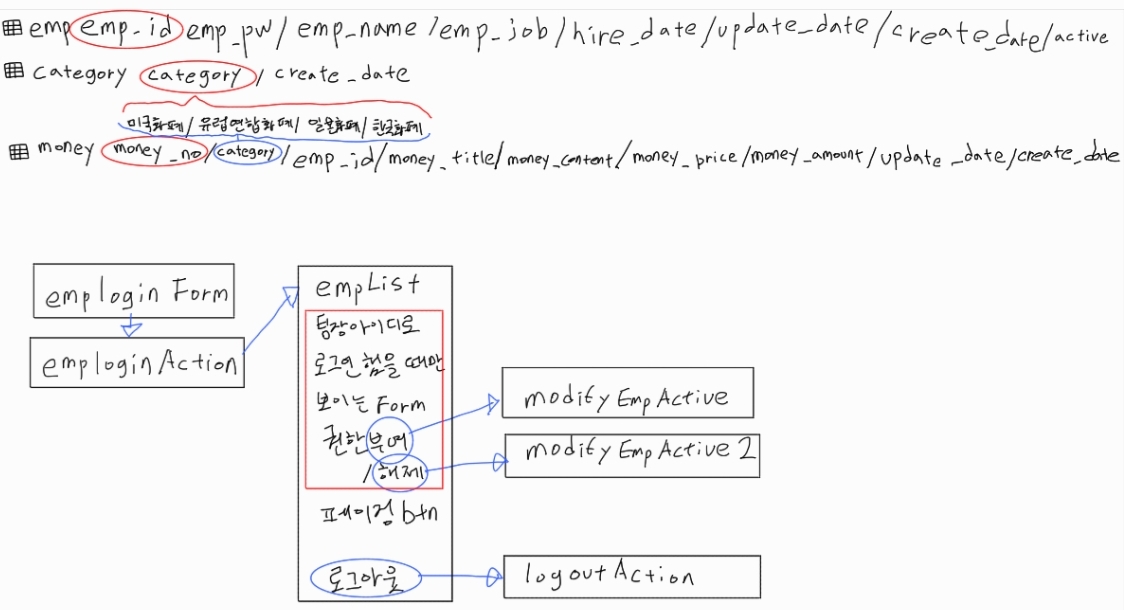 emp emp_id emp_pw/ emp_name /emp_job/hire_date/update_date/create_date/active
category category/ create_date
미국화폐/ 유럽연합화폐/ 일본화폐/ 한국화폐
money money_no/category/emp_id/money_title/money_content/money_price/money_amount/update_date/create_date
emplogin Form
emploginAction
empList
팀장아이디로
로그인 했을 때만
보이는 Form
권한부여
/해제
페이징 btn
로그아웃
modifyEmpActive
modifyEmpActive2
logoutAction